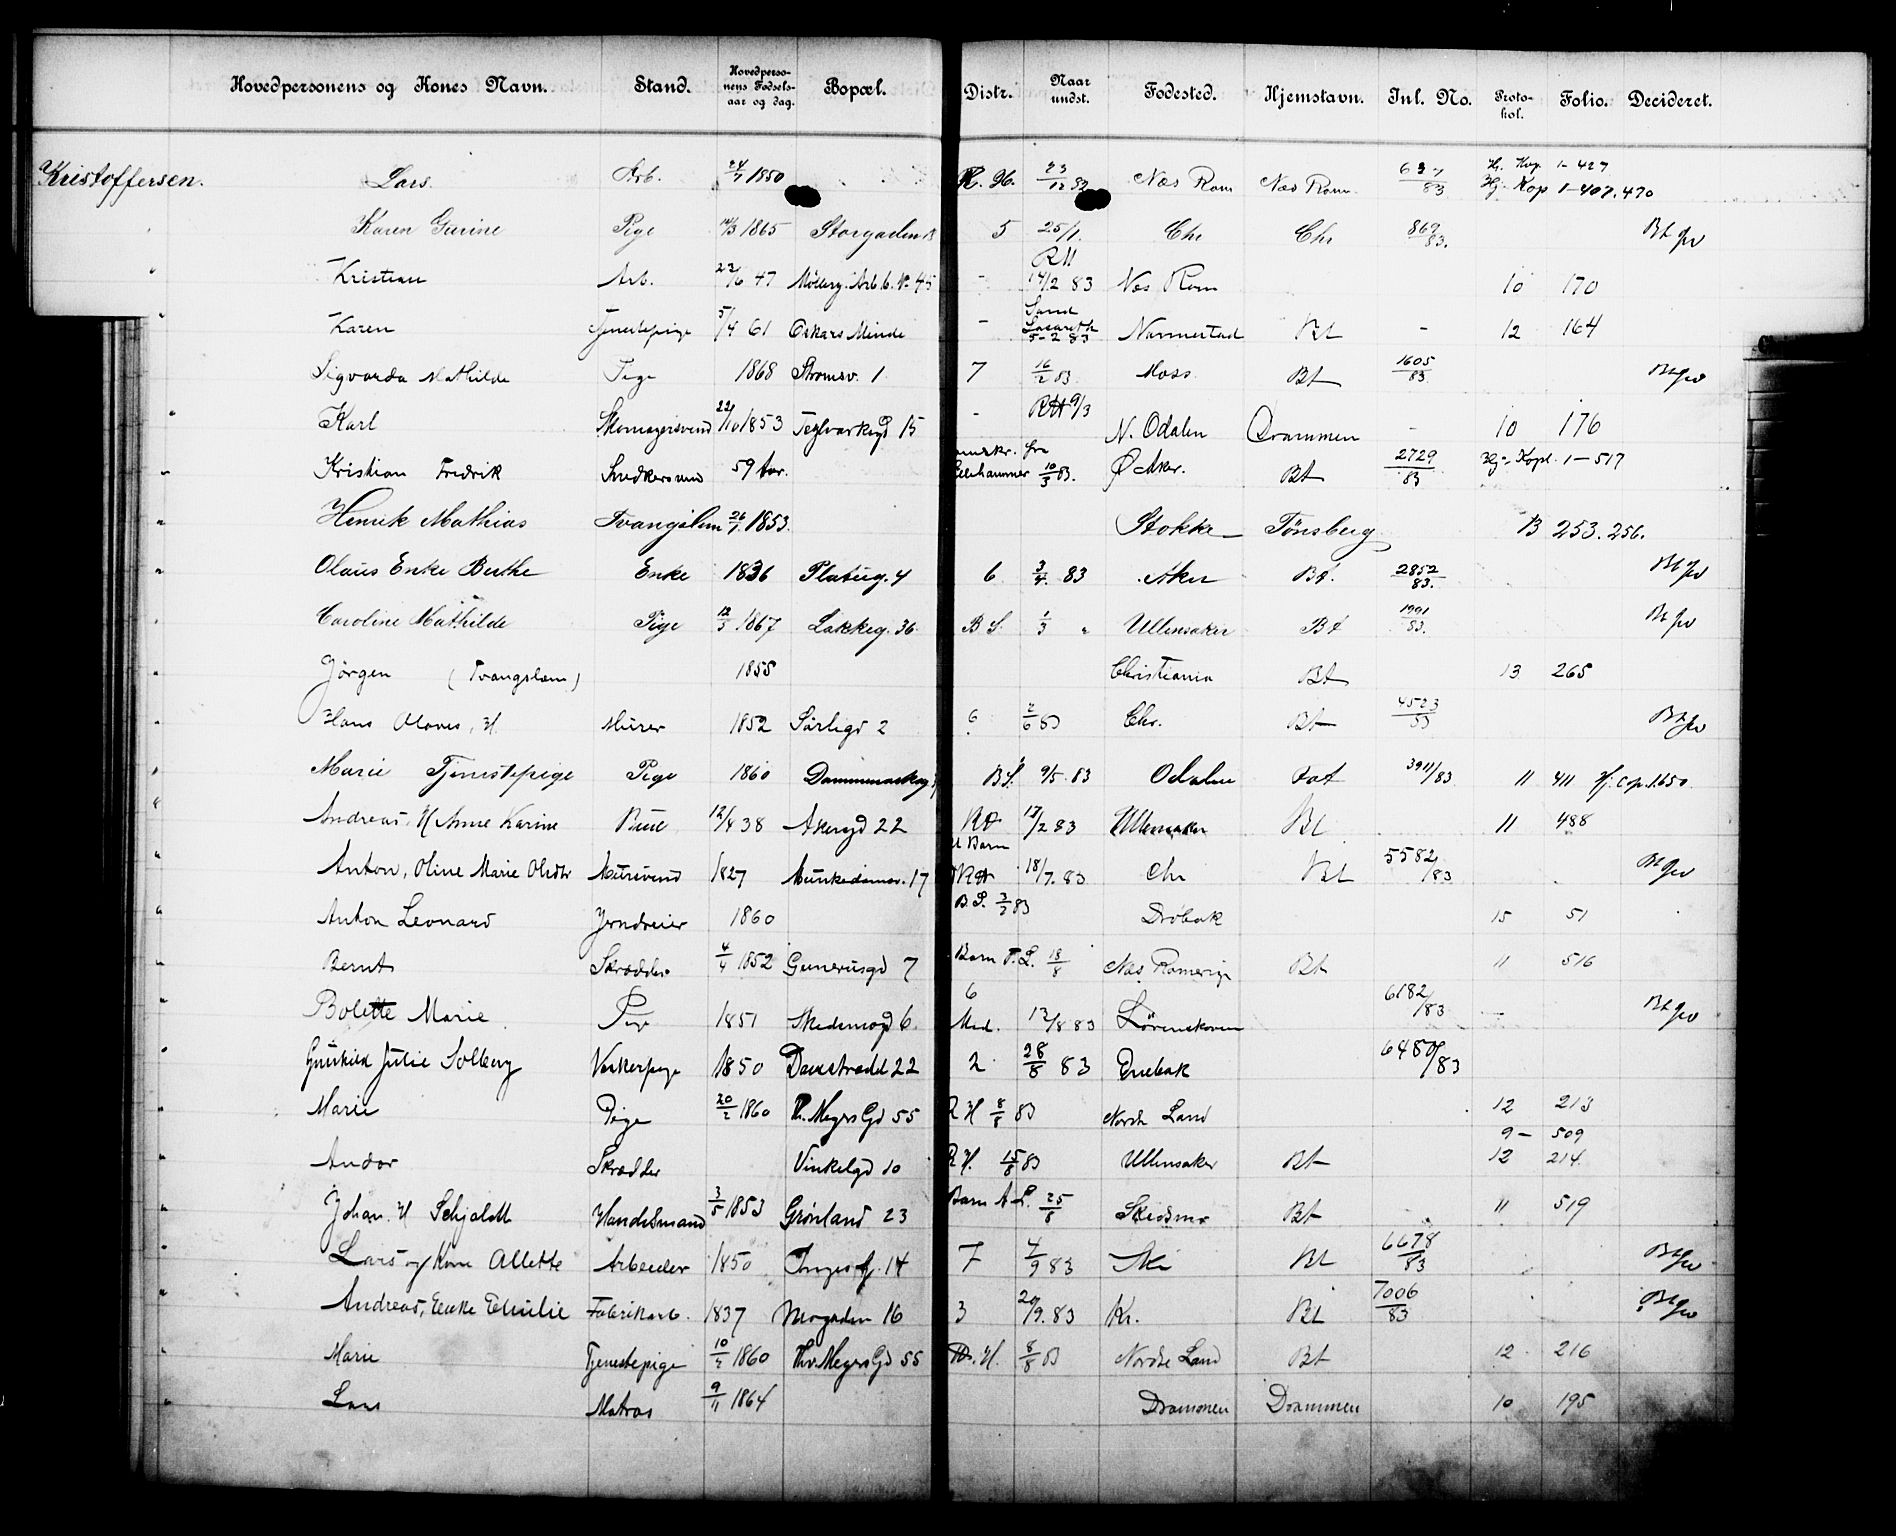 Hovedpersonens og Kones Navn. Stand. Hovedperso-nens Fødsels-aar og dag. Bopæl. Distr. Naar undst. Fødested. Hjemstavn. Inl. No. Proto-kol. Folio. Decideret.
Kristoffersen. Lars. Arb. 24/7 1850 R. H. 23/12 82 Næs Rom Næs Rom 83 Hj. Kop 1-427
Hj. Kop 1-407.470
" Karen Gurine Pige 1865 Storgaden 5 25/1. Chr Chr 869/83. Bt
RH
" Kristian Arb. 47 Møllerg. Arb. b. No 45 - 14/2 83 Næs Rom 10 170
" Karen Tjenestepige 5/4 61 Oskars Minde - Lazareth 5-2 83 Bt - 12 164
" Sigvarda Mathilde Pige 1868 Strømsv. 1 7 16/2 83 Moss Bt 1605/83. Bt
" Karl Skomagersvend 22/10 1853 Teglværksgd 15 - RH 9/3 N. Odalen Drammen - 10 176
" Kristian Fredrik Snedkersvend 59 Aar. fra Lillehammer 10/3 83. Ø Aker. Bt 2729/83 Hj. Kopi. 1-517
" Henrik Mathias Tvangslem 26/1. 1853. Stokke Tønsberg B 253. 256.
" Olaus Enke Berthe Enke 1836 Platoug. 4 6 3/4. 83 Aker Bt. 2852/83. Bt
" Caroline Mathilde Pige 12/3 1867 Lakkeg. 36 B S. 1/3 " Ullensaker Bt 1991/83. Bt
" Jørgen (Tvangslem) 1855 Christiania Bt 13 265
" Hans Olaves, H Murer 1852 Sørligd 2 6 2/6 83 Chr. Bt 4523/83 Bt
" Marie Tjenestepige Pige 1860 B S. 9/5 83 Odalen 3911/83 11 411 Hj. Cop. 1.650
" Andreas, H Anne Karine 12/4 38 Akersgd 22 17/2 83 Ullensaker Bt 11 488
" Anton, Oline Marie Olsdtr Murersvend 1827 Munkedamsv. 17 RH 18/7. 83 Chr Bt 5582/83 Bt
" Anton Leonard Jerndreier 1860 B. S. 3/2 83 Drøbak 15 51
" Bernt Skrædder 4/4 1852 Gunerusgd 7 Barn F. L. 18/8 Næs Romerige Bt 11 516
" Bolette Marie Pige 1851 Skedsmogd 6. 6 Med. 13/8 83 Lørenskoven 6182/83 Bt
" Gunhild Julie Solberg Vaskerpige 1850 Damstrædd 22 2 28/8 83 Enebak 6480/83
" Marie Pige 20/2 1860 Th. Meyers Gd 55 R H 8/8 83 Nordre Land 12 213
9 - 509
" Andor Skrædder Vinkelgd 10 R H. 15/8 83 Ullensaker Bt 12 214.
" Johan. H Schjoldt Handelsmand 3/5 1853 Grønland 23 Barn A L. 25/8 Skedsmo Bt 11 519
" Lars og Kone Allette Arbeider 1850 Inges G. 14 7 4/9 83 Ski Bt 6678/83 Bt
" Andreas, Enke Emilie Fabrikarb. 1837 16 3 20/9. 83 Kr. Bt 7006/83 Bt
" Marie Tjenestepige 10/2 1860 Thv. Meyers Gd 55 R. H. 8/8 83 Nordre Land Bt 12 216
" Lars Matros 9/11 1864 Drammen Drammen 10 195